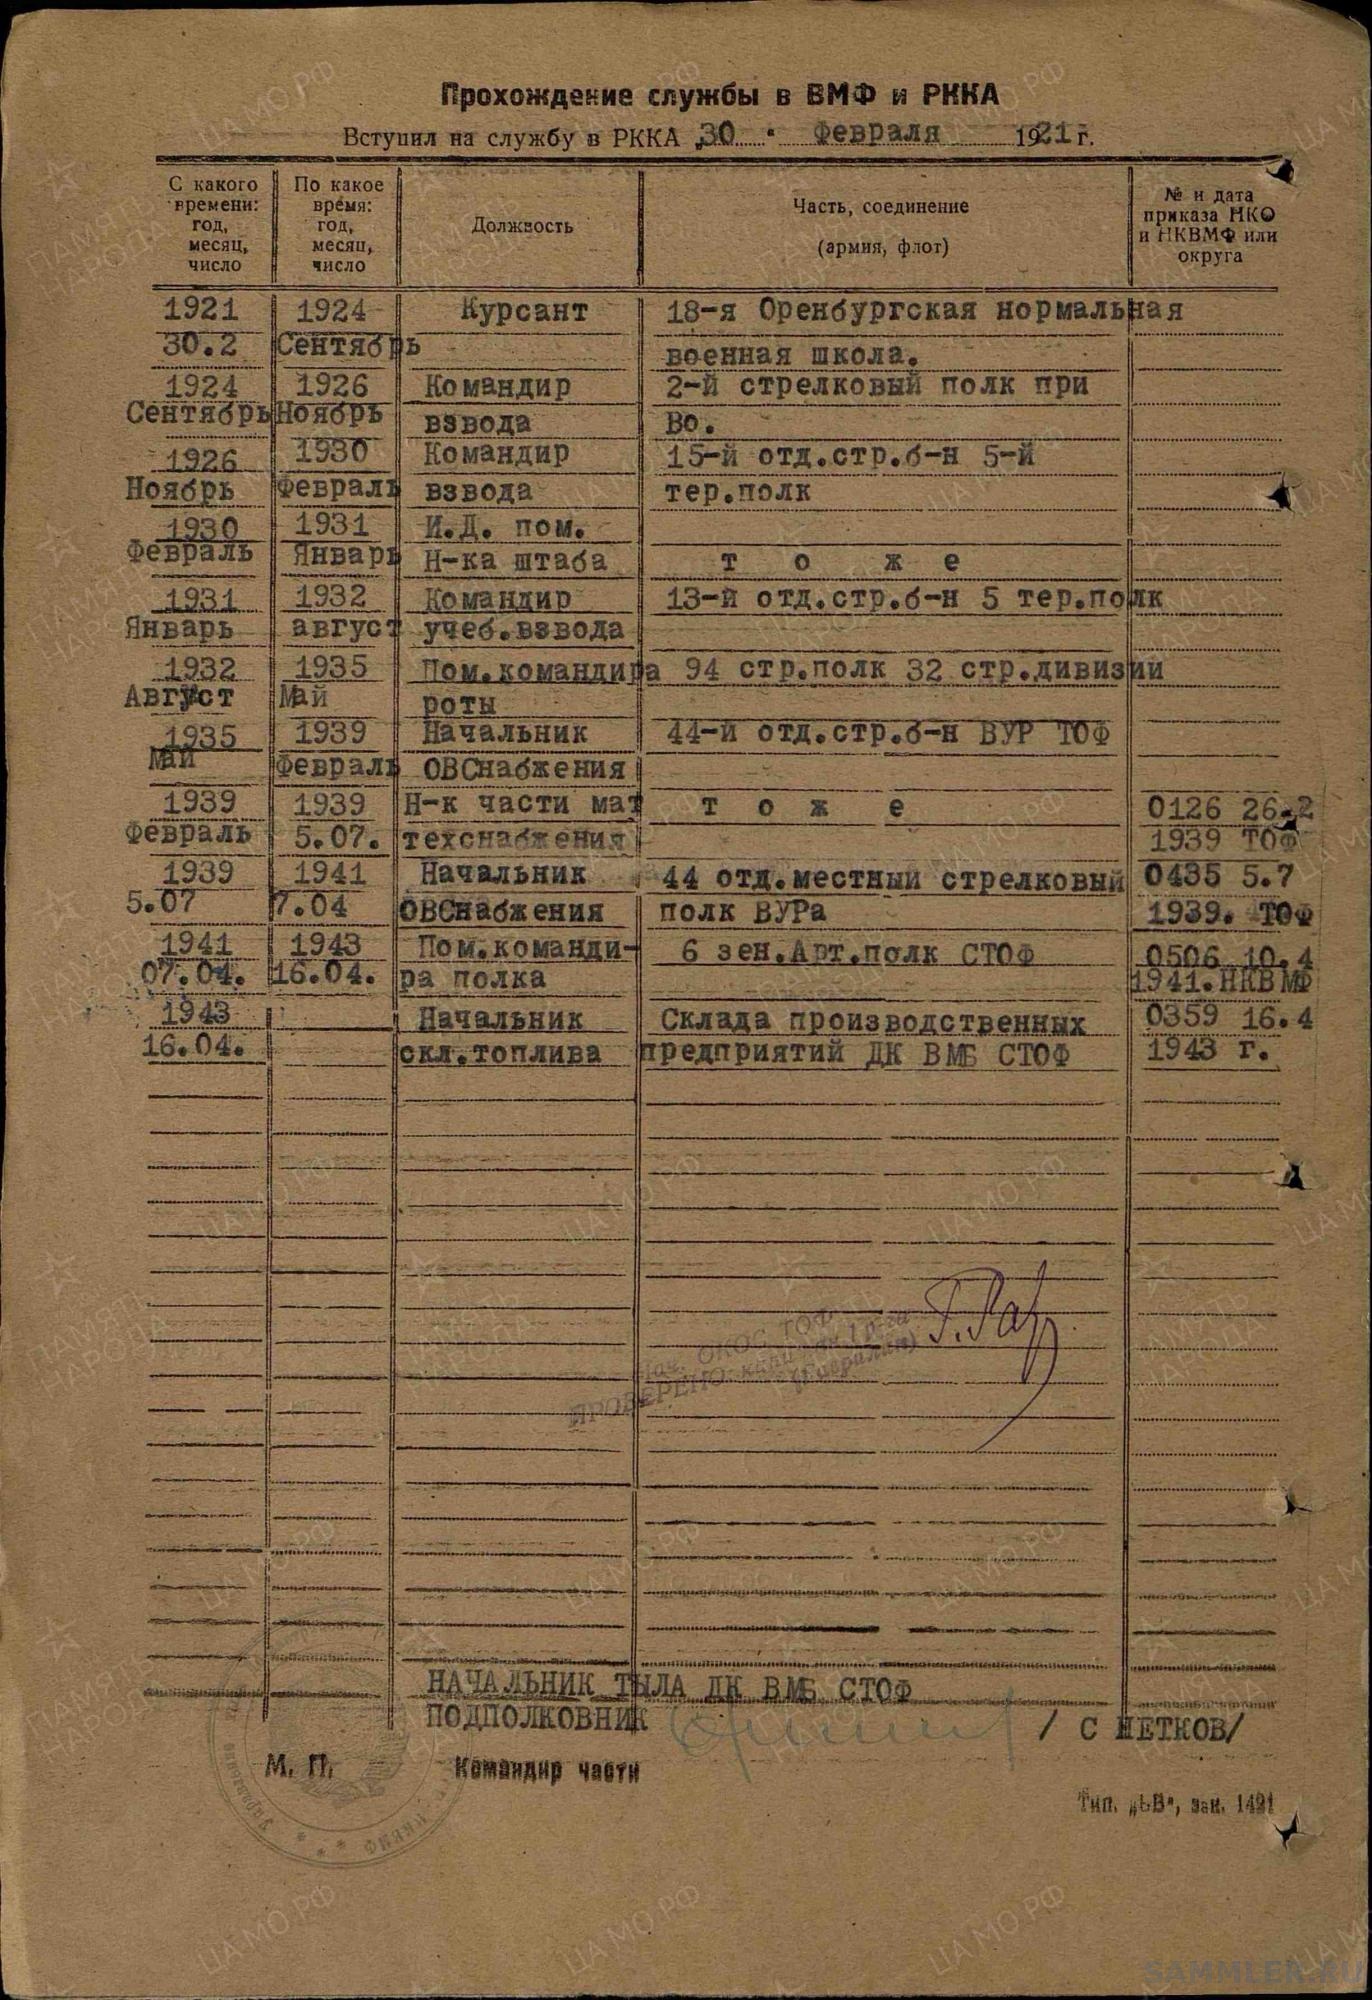 Прохождение службы в ВМФ и РККА
Вступил на службу в РККА „30 " февраля 1921 г.
С какого времени: год, месяц, число
По какое время: год, месяц, число
Должность
Часть, соединение (армия, флот)
№ и дата приказа НКО и НКВМФ или округа
1921 1924 Курсант 18-я Оренбургская нормальная
30.2 Сентябрь военная школа.
1924 1926 Командир 2-й стрелковый полк при
Сентябрь Ноябрь взвода Во.
1926 1930 Командир 15-й отд.стр.б-н 5-й
Ноябрь Февраль взвода тер.полк
1930 1931 И.Д. пом.
Февраль Январь Н-ка штаба т о ж е
1931 1932 Командир 13-й отд.стр.б-н 5 тер.полк
Январь август учеб.взвода
1932 1935 Пом.командира 94 стр.полк 32 стр.дивизии
Август Май роты
1935 1939 Начальник 44-й отд.стр.б-н ВУР ТОФ
Май Февраль ОВСнабжения
1939 1939 Н-к части мат т о ж е 0126 26.2
Февраль 5.07. техснабжения 1939 ТОФ
1939 1941 Начальник 44 отд.местный стрелковый 0435 5.7
5.07 7.04 ОВСнабжения полк ВУРа 1939. ТОФ
1941 1943 Пом.команди- 6 зен.Арт.полк СТОФ 0506 10.4
07.04. 16.04. ра полка 1941.НКВМФ
1943 Начальник Склада производственных 0359 16.4
16.04. скл.топлива предприятий ДК ВМБ СТОФ 1943 г.
Нач. ОКОС ТОФ
ПРОВЕРЕНО: капитан 1 р-га
(Гаврилин)
НАЧАЛЬНИК ТЫЛА ДК ВМБ СТОФ
ПОДПОЛКОВНИК / С НЕТКОВ/
М. П. Командир части
Тип. зак. 1491
ЦАМО РФ
ПАМЯТЬ НАРОДА
SAMMLER.RU